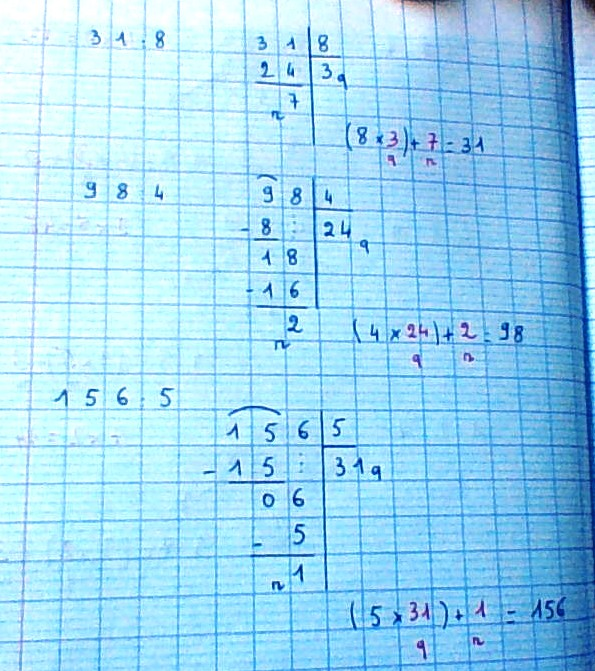 31:8
31 8
24 3q
7
r
(8×3)+7=31
q r
984
98 4
-8 : 24q
18
-16
2
r
(4×24)+2=98
q r
156:5
156 5
-15 : 31q
06
-5
r1
(5×31)+1=156
q r